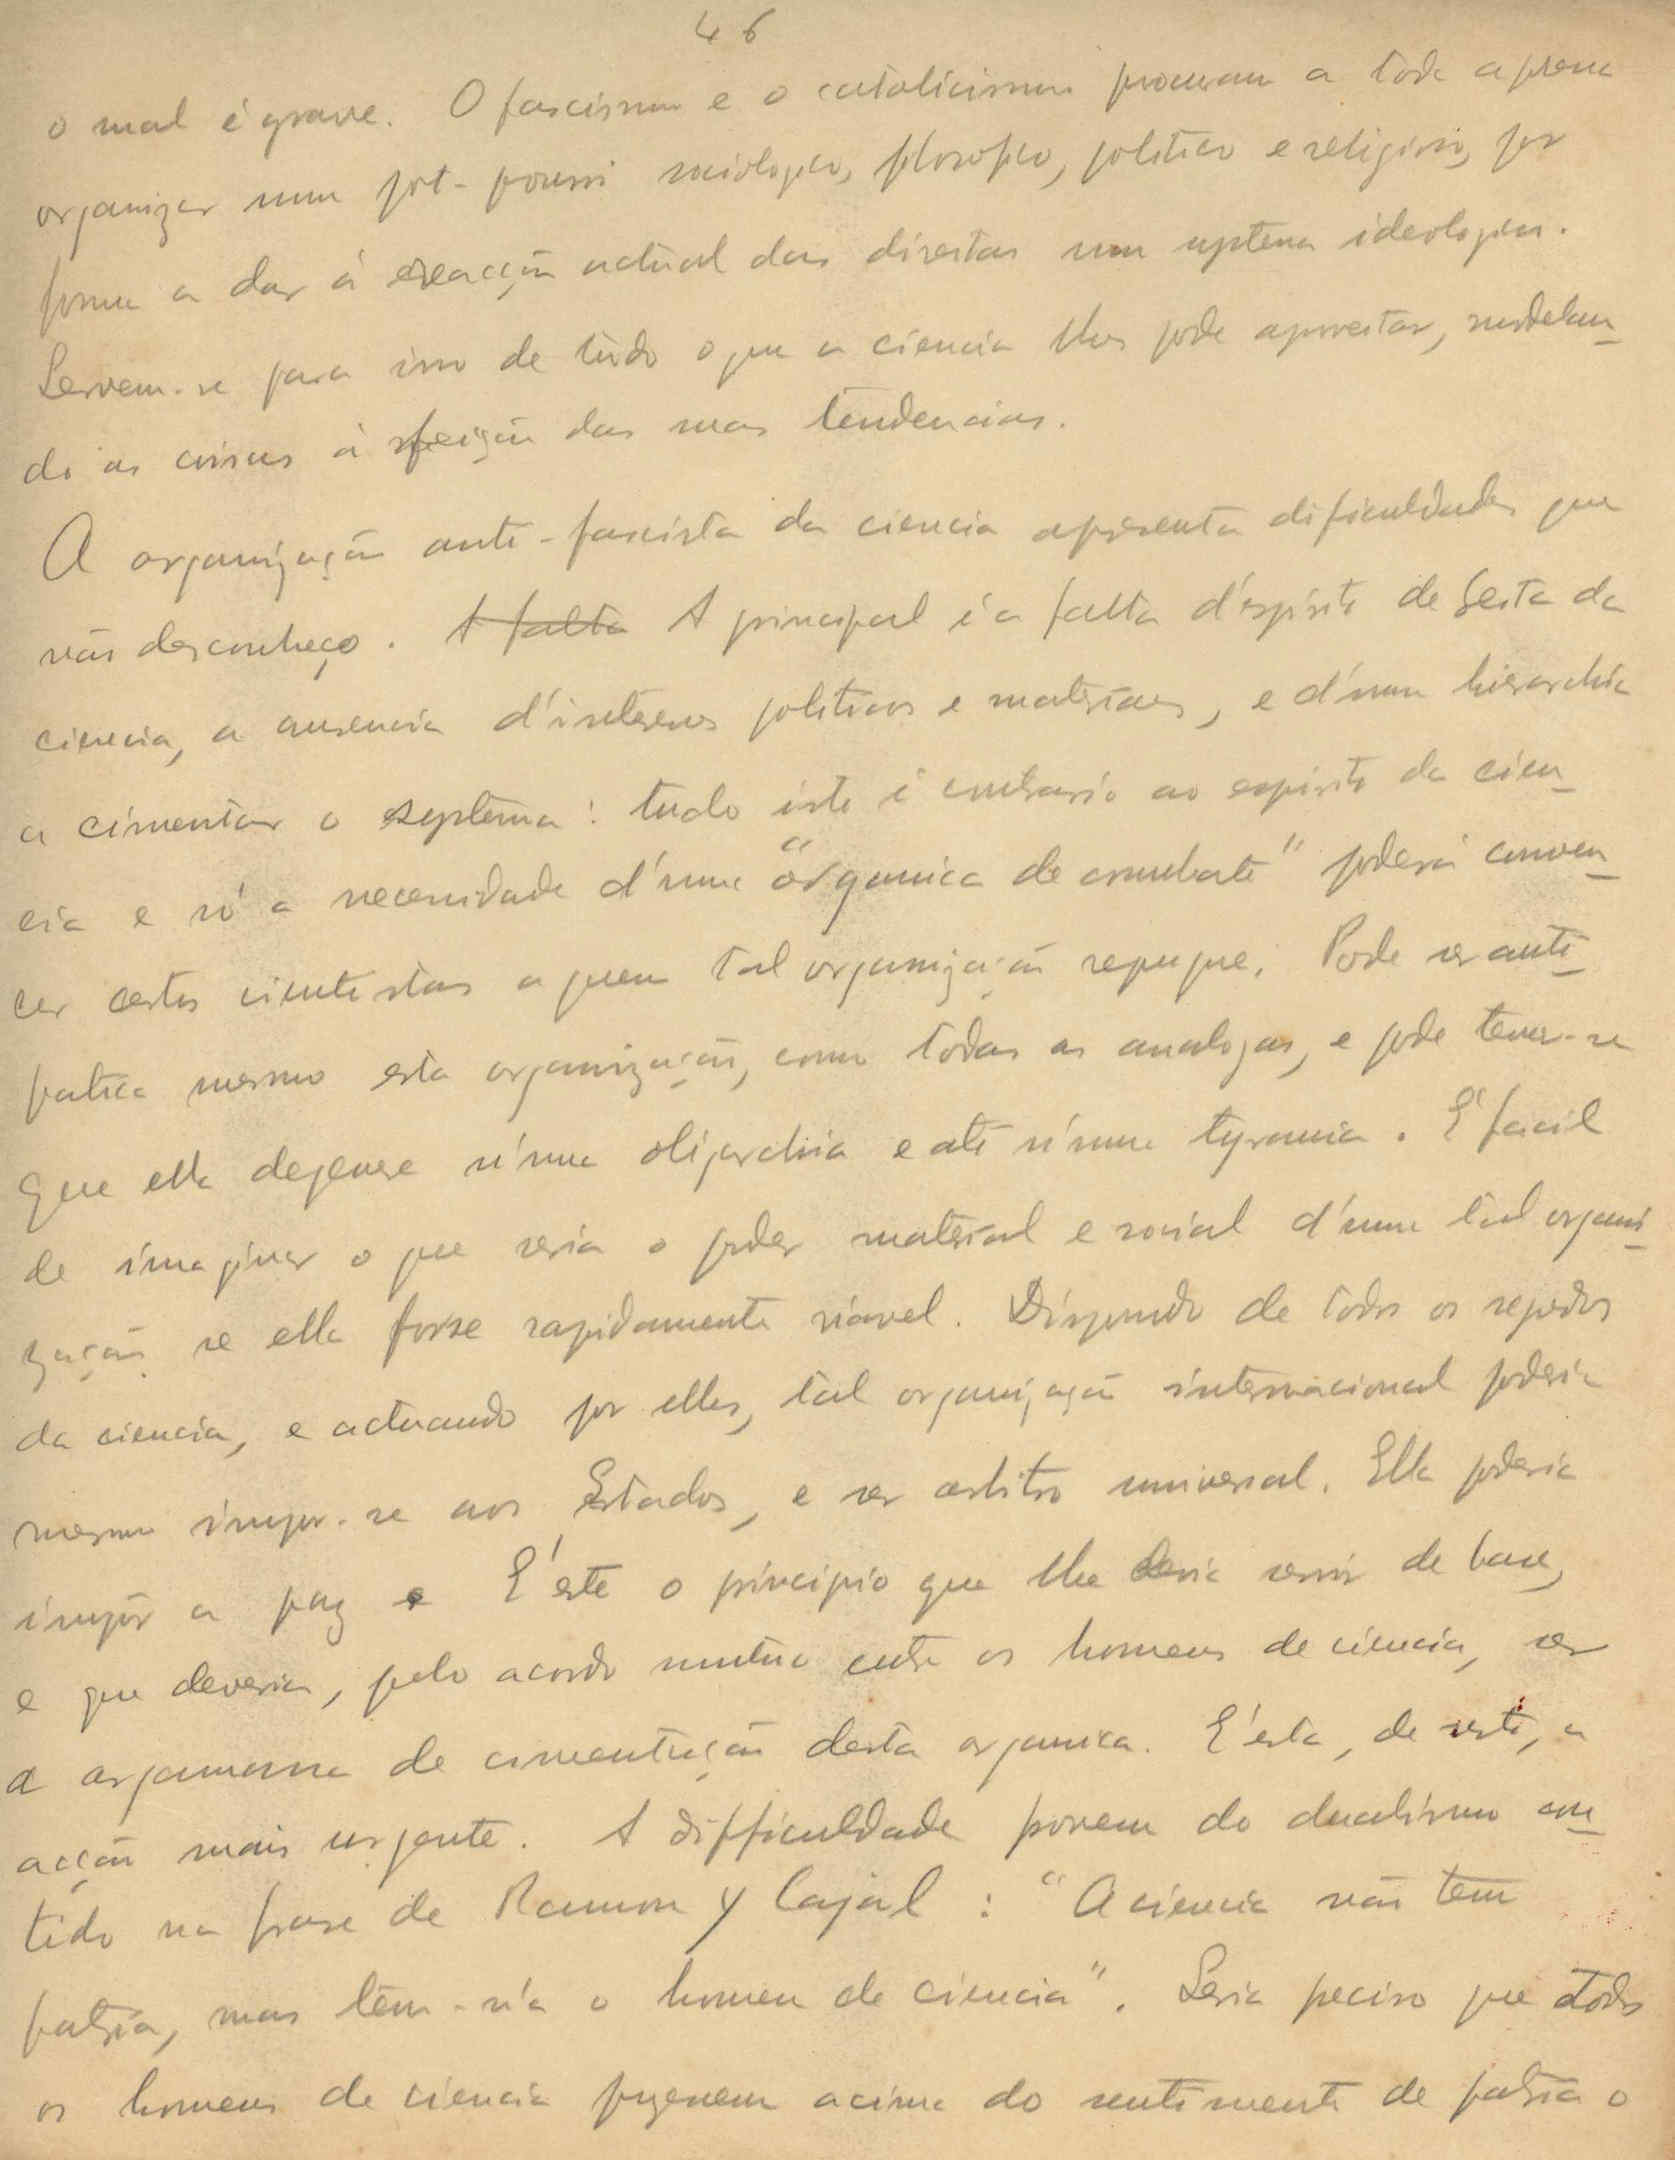 46
o mal é grave. O fascismo e o catolicismo procuram a toda a pressa
organizar um pot-pourri sociologico, filosofico, politico e religioso, por
forma a dar á reacção actual das direitas um systema ideologico.
Servem-se para isso de tudo o que a ciencia lhes pode aproveitar, modelan-
do as coisas á feição das suas tendencias.
A organização anti-fascista da ciencia apresenta dificuldades que
não desconheço. A falta A principal é a falta d'espirito de seita da
ciencia, a ausencia d'interesses politicos e materiaes, e d'uma hierarchia
a cimentar o systema: tudo isto é contrario ao espirito da cien-
cia e só a necessidade d'uma "organica de combate" poderá conven-
cer certos cientistas a quem tal organização repugne. Pode ser anti-
patica mesmo esta organização, como todas as analogas, e pode temer-se
que ella degenere n'uma oligarchia e até n'uma tyrania. E' facil
de imaginar o que seria o poder material e social d'uma tal organi-
zação se ella fosse rapidamente viavel. Dispondo de todos os segredos
da ciencia, e actuando por elles, tal organização internacional poderia
mesmo impor-se aos Estados, e ser arbitro universal. Ella poderia
impôr a paz E' este o principio que lhe devia servir de base,
e que deveria, pelo acordo mutuo entre os homens de ciencia, ser
a argamassa de cimentação desta organica. E' esta, de resto, a
acção mais urgente. A difficuldade provem do dualismo con-
tido na frase de Ramon y Cajal: "A ciencia não tem
patria, mas tem-n'a o homem de ciencia". Seria preciso que todos
os homens de ciencia puzessem acima do sentimento de patria o